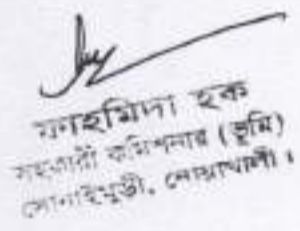 ফাহমিদা হক
সহকারী কমিশনার (ভূমি)
সোনাইমুড়ী, নোয়াখালী।